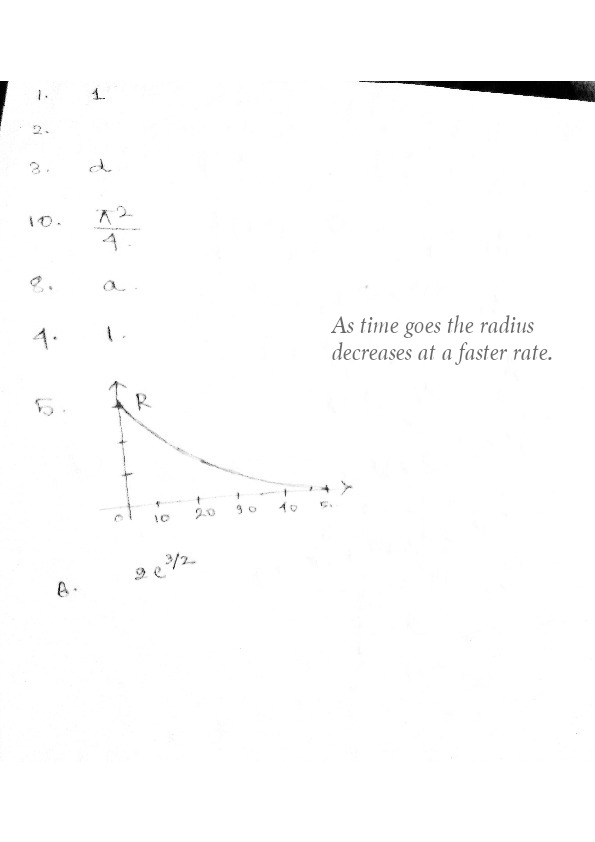 1. 1
2.
3. d
10. π2
4.
8. a.
4. 1.
As time goes the radius
decreases at a faster rate.
5. R
0 10 20 30 40 5.
A. 2e^3/2